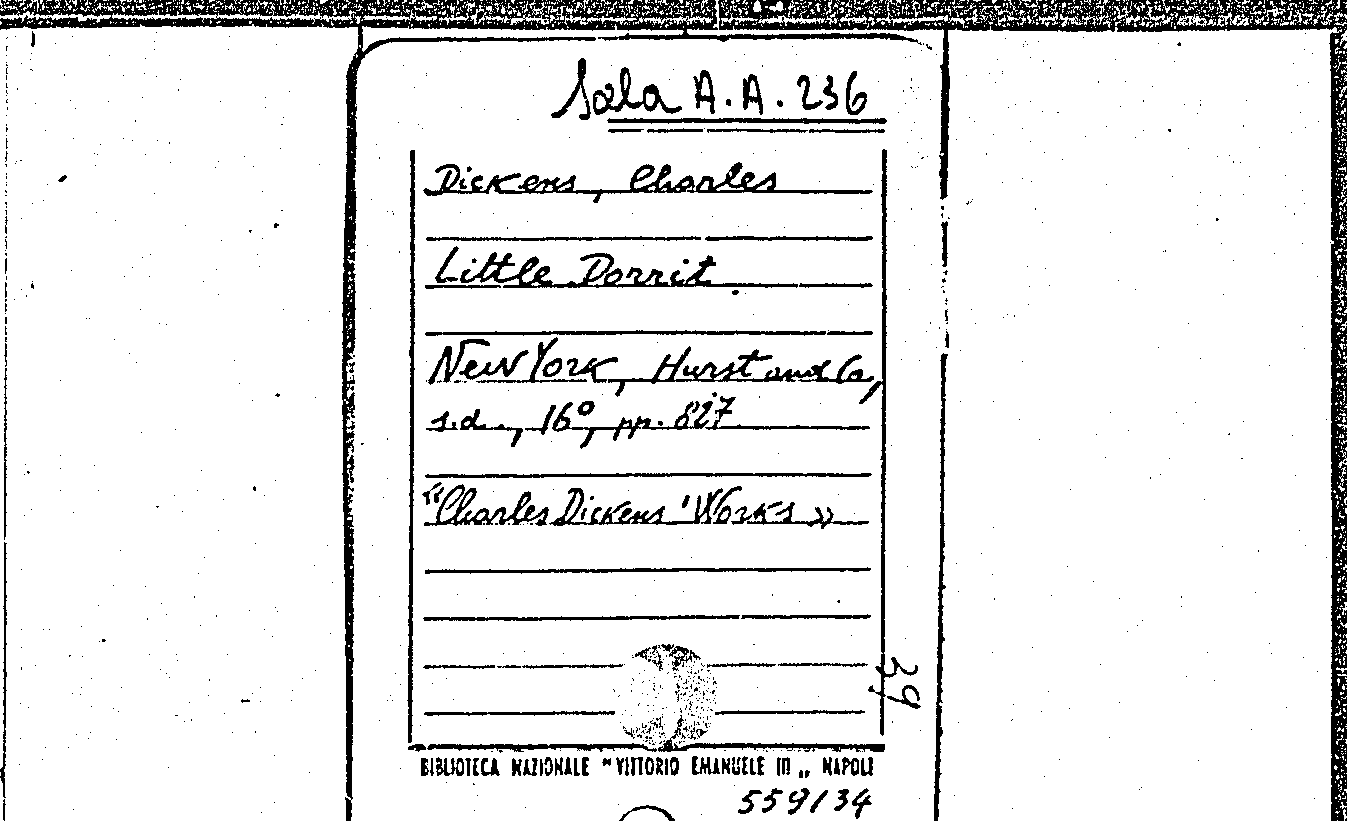 Sala A.A. 236
Dickens, Charles
Little Dorrit
New York, Hurst and Co,
s.d., 16°, pp. 827
"Charles Dickens' Works »
39
BIBLIOTECA NAZIONALE " VITTORIO EMANUELE III „ NAPOLI
559/34